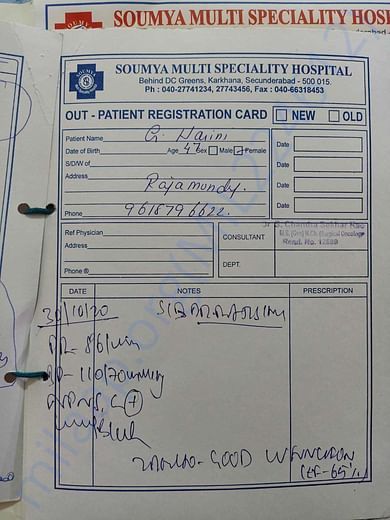 SOUMYA MULTI SPECIALITY HOSPI
SOUMYA MULTI SPECIALITY HOSPITAL
Behind DC Greens, Karkhana, Secunderabad - 500 015.
Ph : 040-27741234, 27743456, Fax : 040-66318453
SOUMYA
OUT - PATIENT REGISTRATION CARD NEW OLD
Patient Name G. Harini
Date of Birth Age 47 Sex Male Female
S/D/W of
Address Rajamundy.
Phone 9618796622.
Date
Date
Date
Date
Ref Physician
Address
Phone ®
CONSULTANT
Dr G. Chandra Sekhar Rao
M.S. (Gen) M.Ch. (Surgical Oncology)
DEPT.
DATE NOTES PRESCRIPTION
30/10/20
PR- 86/min
BP- 110/70mmHg
2DECHO- GOOD LV FUNCTION
(EF-65%)